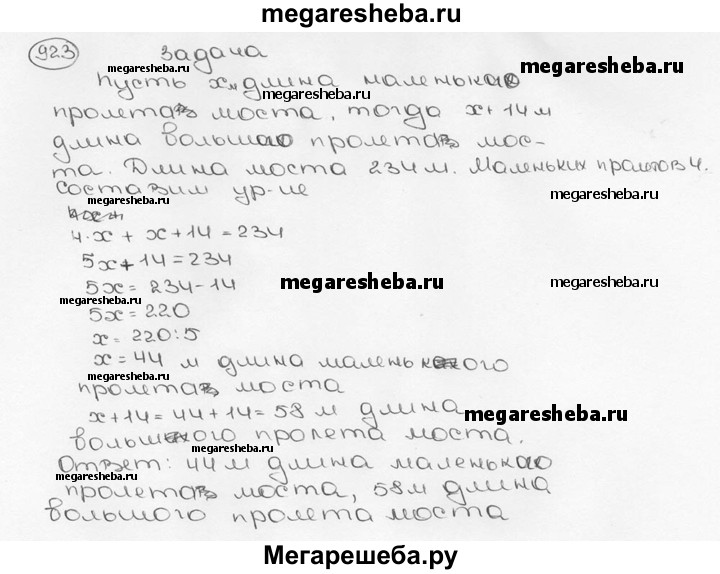 megaresheba.ru
923 задача
megaresheba.ru
megaresheba.ru
Пусть x м длина маленького
megaresheba.ru
пролета моста, тогда x+14 м
megaresheba.ru
длина большого пролета мос-
та. Длина моста 234 м. Маленьких пролетов 4.
megaresheba.ru
megaresheba.ru
Составим ур-ие
megaresheba.ru
4·x + x + 14 = 234
megaresheba.ru
5x + 14 = 234
5x = 234-14
megaresheba.ru
megaresheba.ru
megaresheba.ru
5x = 220
x = 220:5
x = 44 м длина маленького
megaresheba.ru
пролета моста
x+14 = 44+14 = 58 м длина
megaresheba.ru
megaresheba.ru
большого пролета моста.
megaresheba.ru
Ответ: 44 м длина маленького
megaresheba.ru
пролета моста, 58 м длина
большого пролета моста
Мегарешеба.ру